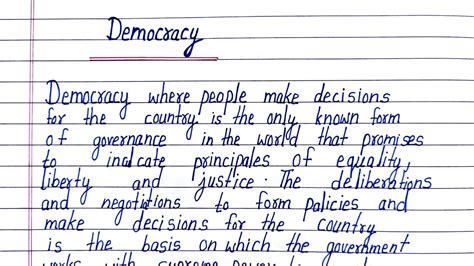 Democracy
Democracy where people make decisions
for the country is the only known form
of governance in the world that promises
to inalcate principales of equality,
liberty and justice. The deliberations
and negotiations to form palicies and
make decisions for the country
is the basis on which the government
works with supreme power